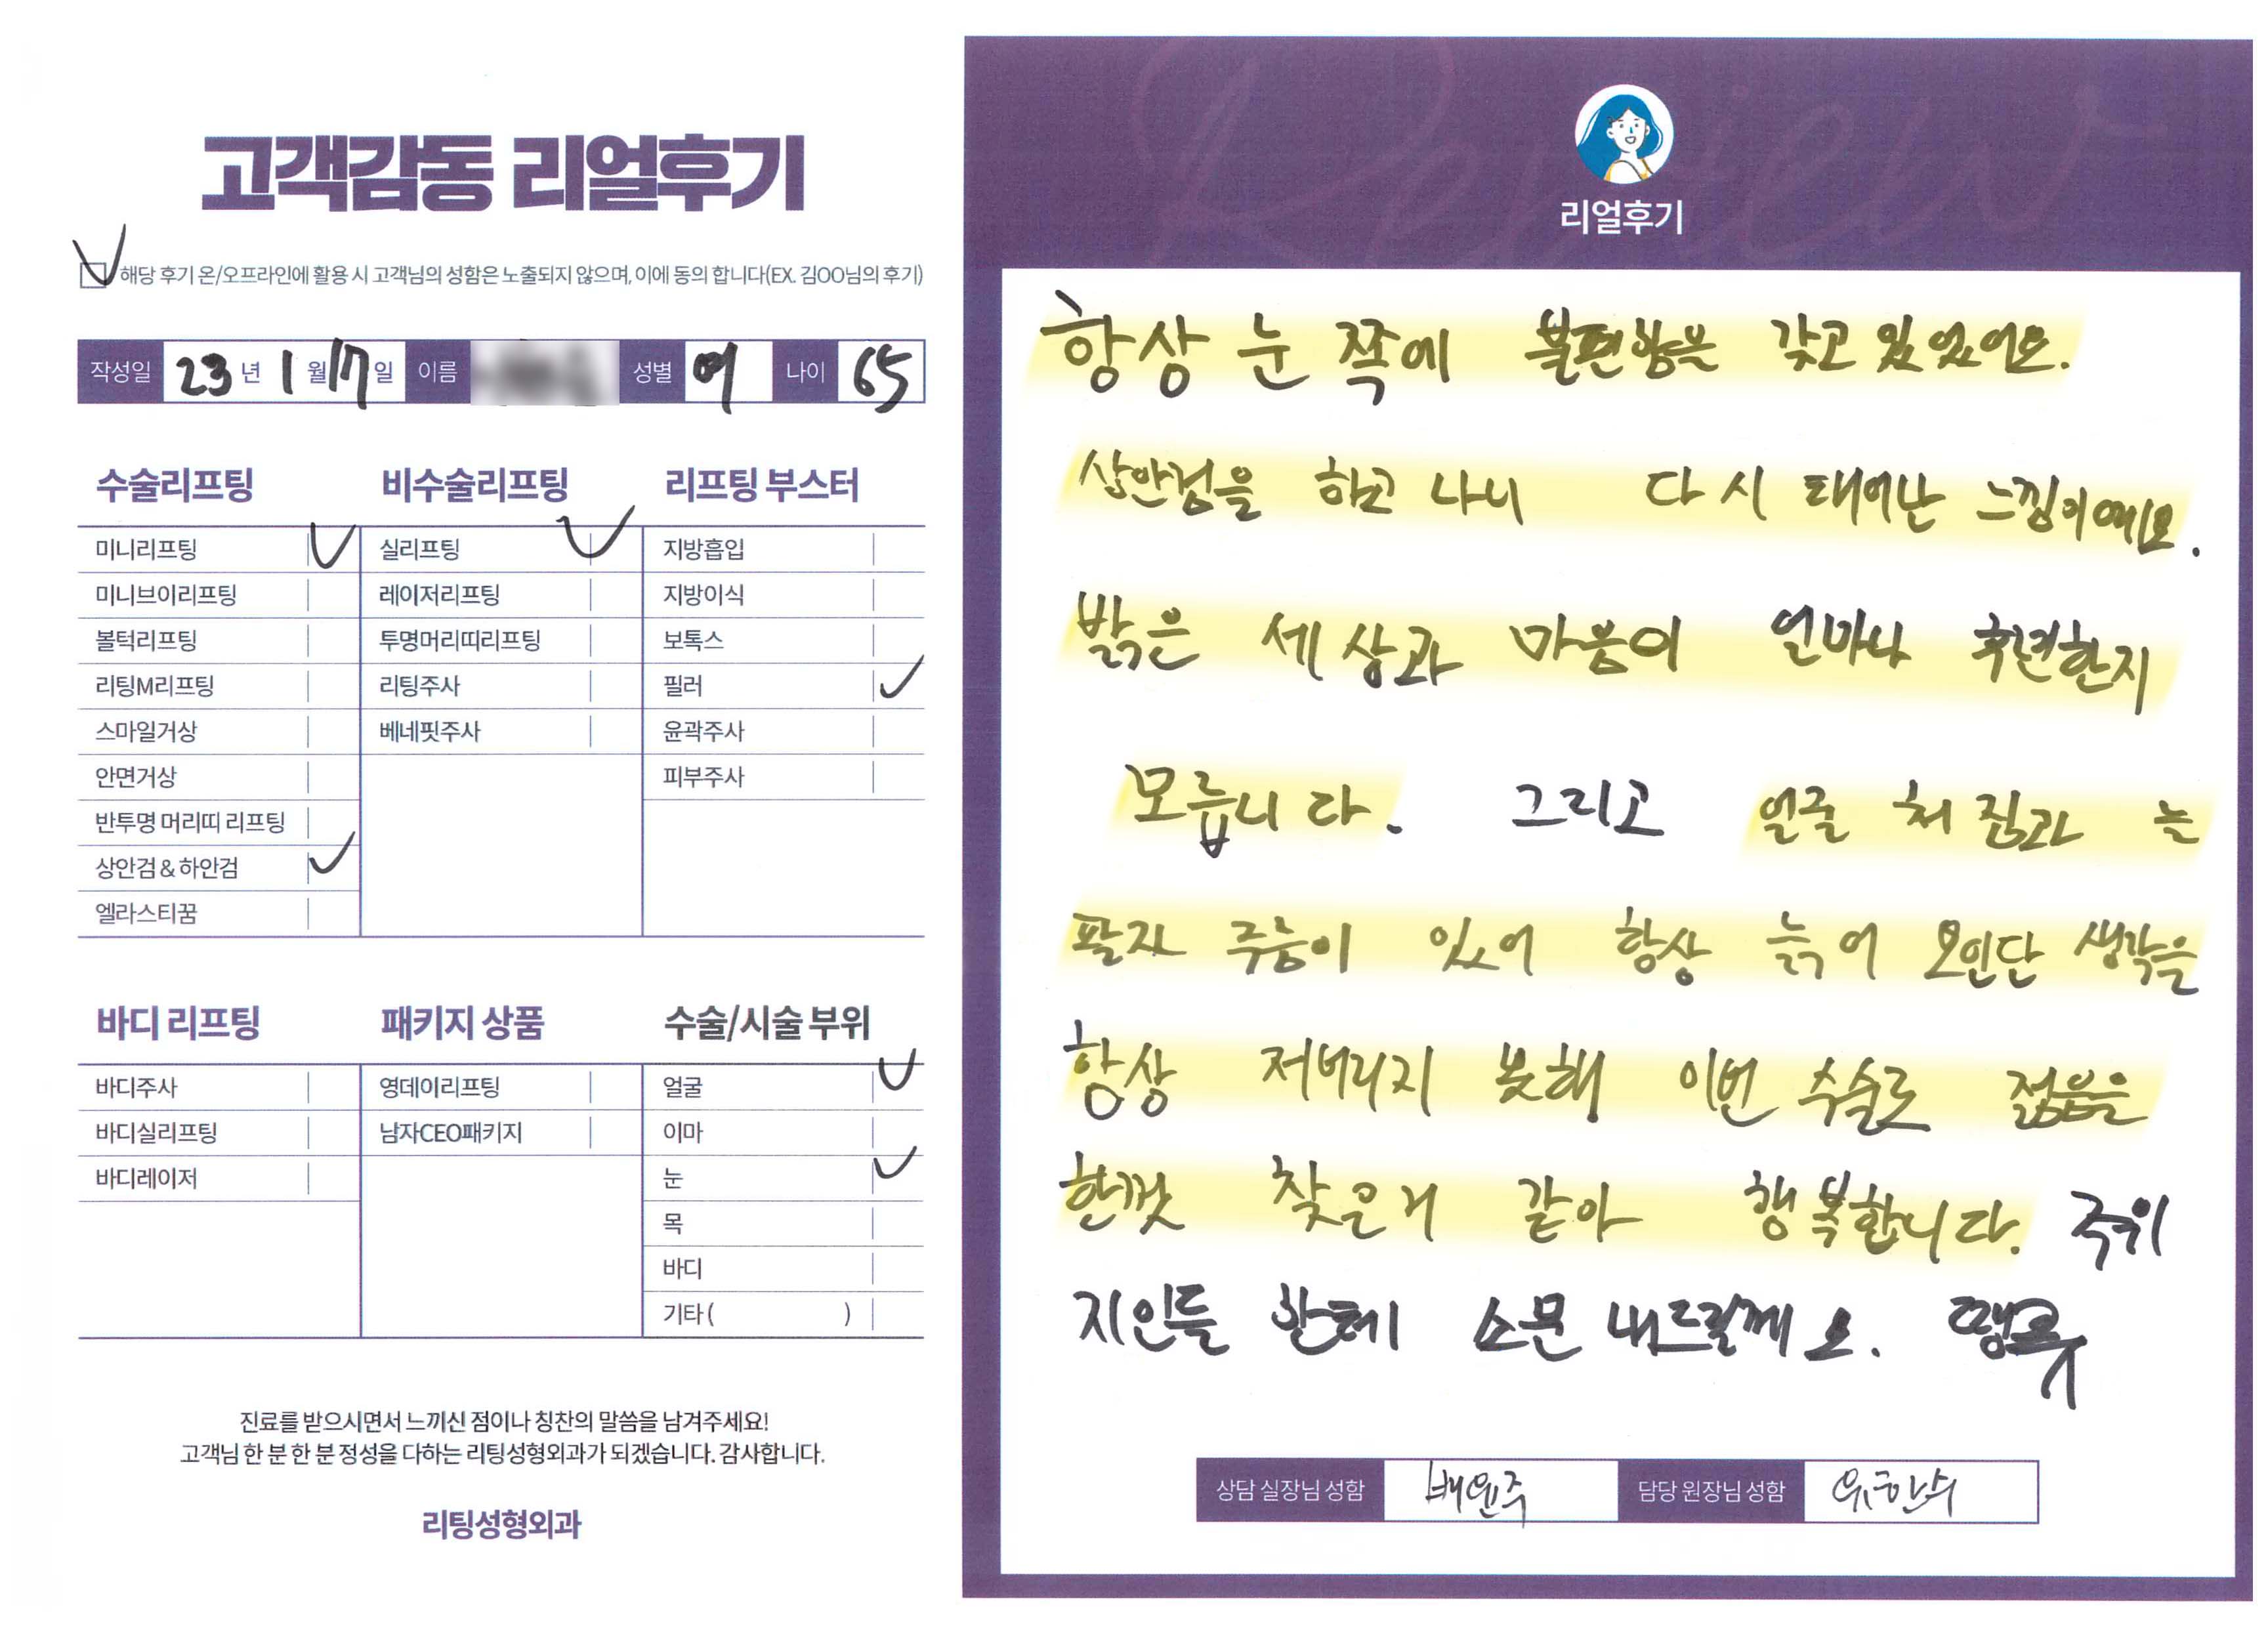 고객감동 리얼후기
해당 후기 온/오프라인에 활용 시 고객님의 성함은 노출되지 않으며, 이에 동의 합니다(EX. 김OO님의 후기)
작성일 23년 1월 17일 이름 성별 여 나이 65
수술리프팅
미니리프팅
미니브이리프팅
볼턱리프팅
리팅M리프팅
스마일거상
안면거상
반투명 머리띠 리프팅
상안검&하안검
엘라스티꿈
비수술리프팅
실리프팅
레이저리프팅
투명머리띠리프팅
리팅주사
베네핏주사
리프팅 부스터
지방흡입
지방이식
보톡스
필러
윤곽주사
피부주사
바디 리프팅
바디주사
바디실리프팅
바디레이저
패키지 상품
영데이리프팅
남자CEO패키지
수술/시술 부위
얼굴
이마
눈
목
바디
기타( )
진료를 받으시면서 느끼신 점이나 칭찬의 말씀을 남겨주세요!
고객님 한 분 한 분 정성을 다하는 리팅성형외과가 되겠습니다. 감사합니다.
리팅성형외과
Review
리얼후기
항상 눈 쪽에 불편함을 갖고 있었어요.
상안검을 하고 나니 다시 태어난 느낌이예요.
밝은 세상과 마음이 얼마나 후련한지
모릅니다. 그리고 얼굴 처짐과 늘
팔자 주름이 있어 항상 늙어 보인단 생각을
항상 저버리지 못해 이번 수술로 젊음을
한껏 찾은거 같아 행복합니다. 주위
지인들 한테 소문 내드릴께요. 땡큐
상담 실장님 성함 배윤주 담당 원장님 성함